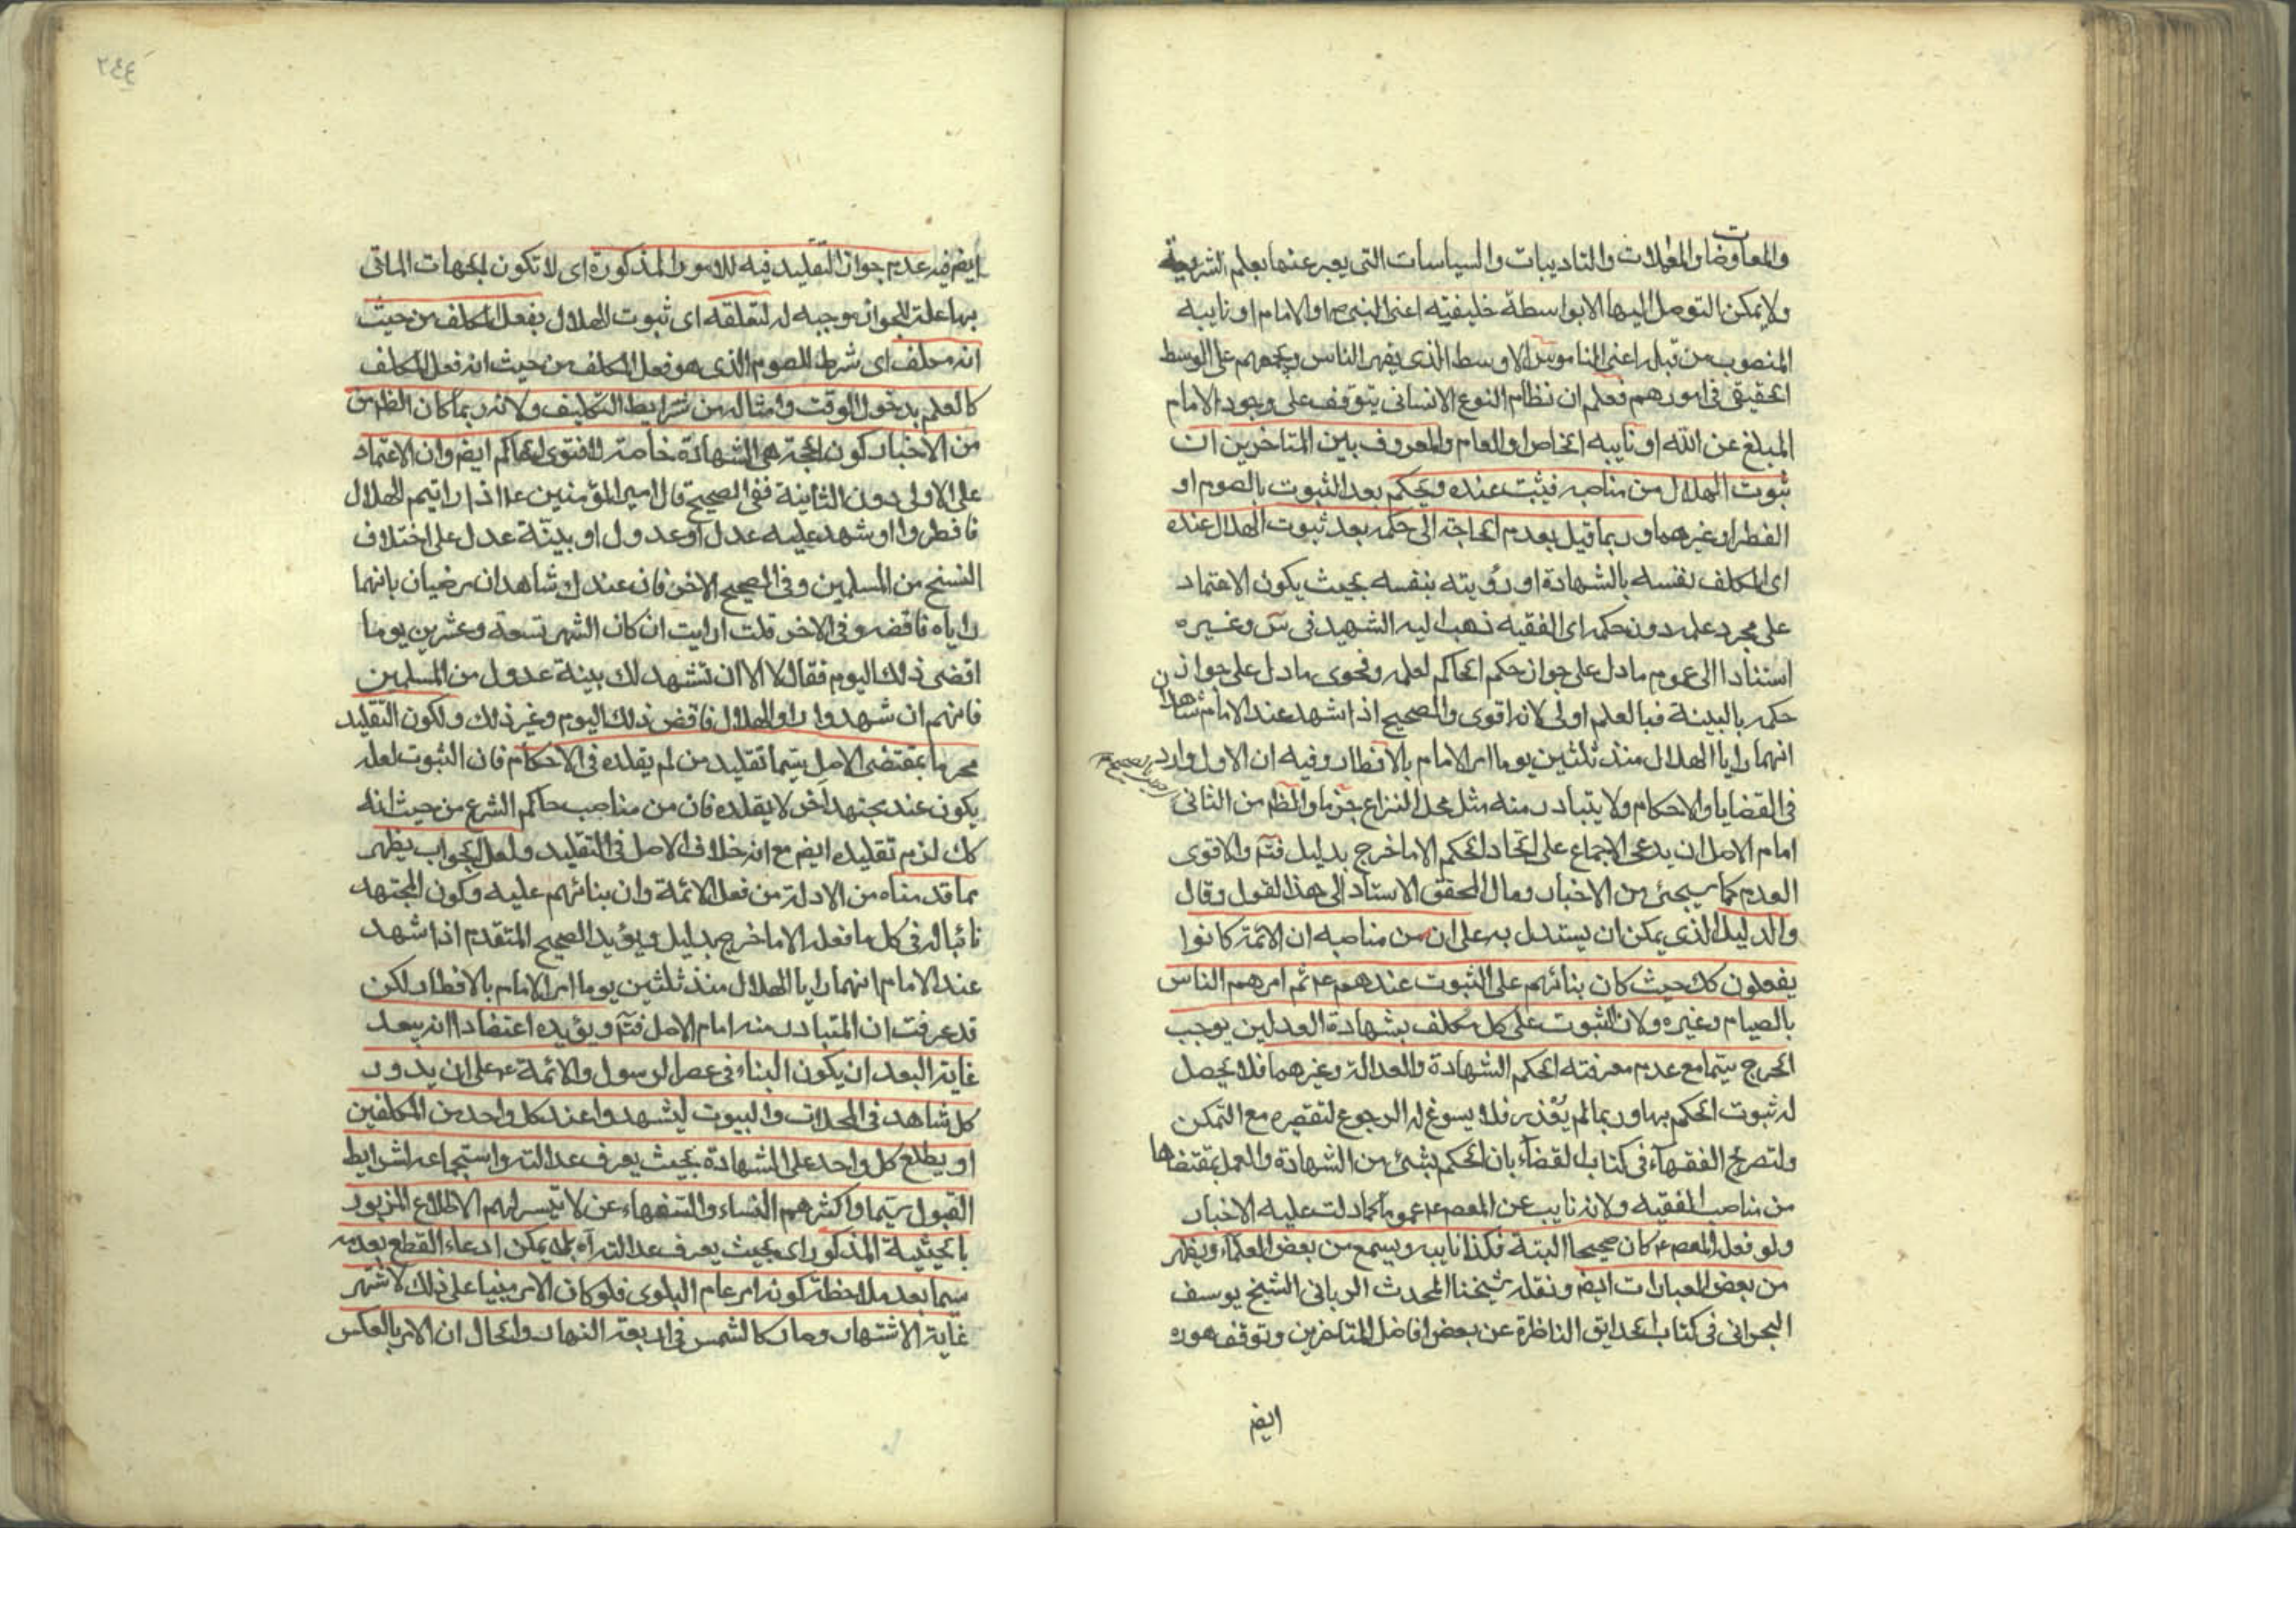 والمعاوضات والمعاملات والتاديبات والسياسات التى يعبر عنها بعلم الشريعة
ولا يمكن التوصل اليها الا بواسطة خليفتيه اعنى النبى ص والامام او نايبه
المنصوب من قبله اعنى الناموس الاوسط الذى يقهر الناس ويجمعهم على الوسط
الحقيقى فى امورهم فعلم ان نظام النوع الانسانى يتوقف على وجود الامام
المبلغ عن الله او نايبه الخاص او العام والمعروف بين المتاخرين ان
ثبوت الهلال من مناصبه فيثبت عنده ويحكم بعد الثبوت بالصوم او
الفطر او غيرهما وربما قيل بعدم الحاجة الى حكمه بعد ثبوت الهلال عنده
اى المكلف نفسه بالشهادة او رؤيته بنفسه بحيث يكون الاعتماد
على مجرد علمه دون حكمه اى الفقيه ذهب اليه الشهيد فى س وغيره
استنادا الى عموم ما دل على جواز حكم الحاكم لعلمه وفحوى ما دل على جواز
حكمه بالبينة فبالعلم اولى لانه اقوى والصحيح اذا شهد عند الامام شاهدان
انهما رايا الهلال منذ ثلثين يوما امر الامام بالافطار وفيه ان الاول وارد
فى القضايا والاحكام ولا يتبادر منه مثل محل النزاع جزما والظ من الثانى
امام الاصل ان يدعى الاجماع على اتحاد الحكم الا ما خرج بدليل فتم والاقوى
العدم كما سيجئ من الاخبار ومال المحقق الاستاد الى هذا القول وقال
والدليل الذى يمكن ان يستدل به على ان من مناصبه ان الائمة كانوا
يفعلون كك حيث كان بنائهم على الثبوت عندهم ع ثم امرهم الناس
بالصيام وغيره ولان الثبوت على كل مكلف بشهادة العدلين يوجب
الحرج سيما مع عدم معرفته الحكم الشهادة والعدالة وغيرهما فلا يحصل
له ثبوت الحكم بها وربما لم يعذر فلا يسوغ له الرجوع لتقصيره مع التمكن
ولتصريح الفقهاء فى كتاب القضاء بان الحكم بشئ من الشهادة والعمل بمقتضاها
من مناصب الفقيه ولانه نايب عن المعصوم ع عموما كما دلت عليه الاخبار
ولو فعل المعص ع كان صحيحا البتة فكذا نايبه ويسمع من بعض العلماء ويظهر
من بعض العبارات ايض ونقله شيخنا المحدث الربانى الشيخ يوسف
البحرانى فى كتاب الحدايق الناظرة عن بعض افاضل المتاخرين وتوقف هوره
ايض
٢٤٤
ايض فيه عدم جواز التقليد فيه للامور المذكورة اى لا تكون لجهات الماتى
بها علة الجواز موجبه له لتعلقه اى ثبوت الهلال بفعل المكلف من حيث
انه مكلف اى شرط الصوم الذى هو فعل المكلف من حيث انه فعل المكلف
كالعلم بدخول الوقت وامثاله من شرايط التكليف ولانه ربما كان الظاهر
من الاخبار كون الحجة هى الشهادة خاصة لا فتوى الحاكم ايض وان الاعتماد
على الاولى دون الثانية ففى الصحيح قال امير المؤمنين ع اذا رايتم الهلال
فافطروا او شهد عليه عدل او عدول او بينة عدل على اختلاف
النسخ من المسلمين وفى الصحيح الاخر فان عندك شاهدان مرضيان بانهما
راياه فاقضه وفى الاخر قلت ارايت ان كان الشهر تسعة وعشرين يوما
اقضى ذلك اليوم فقال لا الا ان تشهد لك بينة عدول من المسلمين
فانهم ان شهدوا راوا الهلال فاقض ذلك اليوم وغير ذلك ولكون التقليد
محرما بمقتضى الاصل سيما تقليد من لم يقلده فى الاحكام فان الثبوت لعله
يكون عند مجتهد اخر لا يقلده فان من مناصب حاكم الشرع من حيث انه
كك لزم تقليده ايض مع انه خلاف الاصل فى التقليد ولعل الجواب يظهر
مما قدمناه من الادلة من فعل الائمة وان بنائهم عليه وكون المجتهد
نائبا له فى كل ما فعله الا ما خرج بدليل ويؤيد الصحيح المتقدم اذا شهد
عند الامام انهما رايا الهلال منذ ثلثين يوما امر الامام بالافطار لكن
قد عرفت ان المتبادر منه امام الاصل فتم ويؤيده اعتضادا انه يبعد
غاية البعد ان يكون البناء فى عصر الرسول والائمة ع على ان يدور
كل شاهد فى المحلات والبيوت ليشهدوا عند كل واحد من المكلفين
او يطلع كل واحد على الشهادة بحيث يعرف عدالته واستجماعه لشرايط
القبول سيما واكثرهم النساء والسفهاء عن لا تيسر لهم الاطلاع المزبور
بالحيثية المذكور اى بحيث يعرف عدالته آه بل يمكن ادعاء القطع بعدمه
سيما بعد ملاحظة كونه امر عام البلوى فلو كان الامر مبنيا على ذلك لاشتهر
غاية الاشتهار وصار كالشمس فى رابعة النهار والحال ان الامر بالعكس